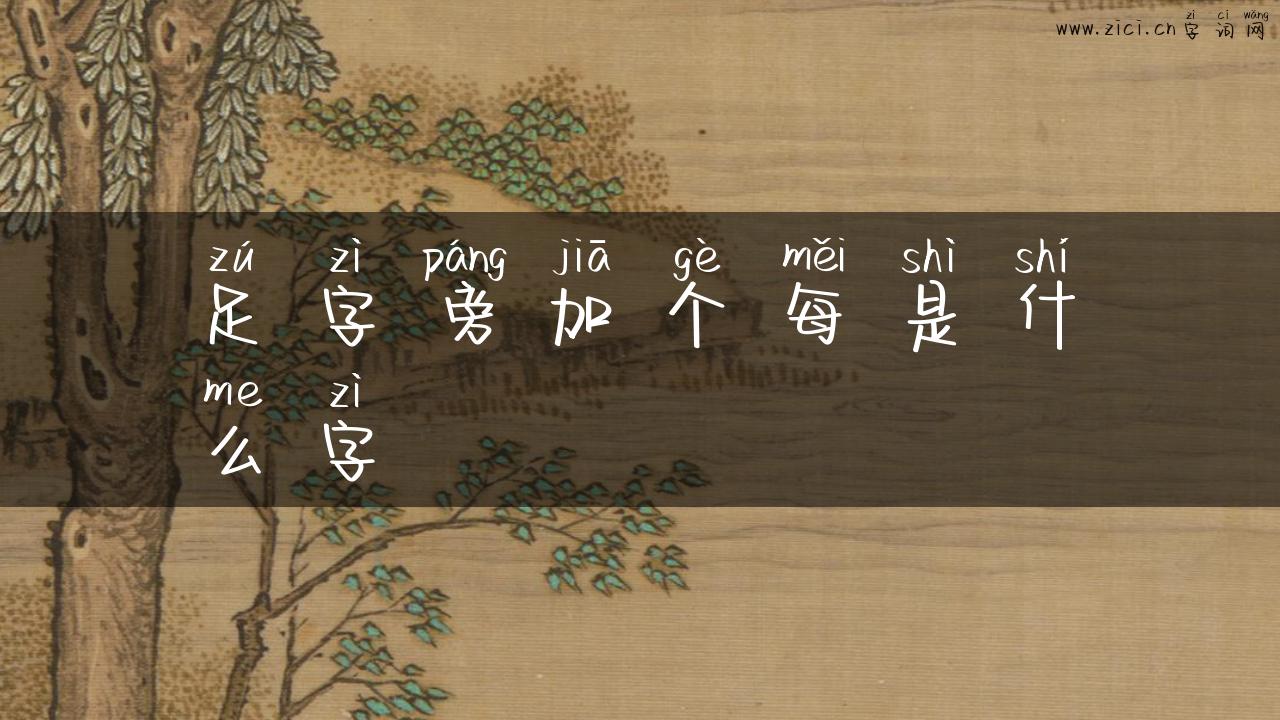 zì cí wǎng
www.zici.cn 字词网
zú zì páng jiā gè měi shì shí
足字旁加个每是什
me zì
么字